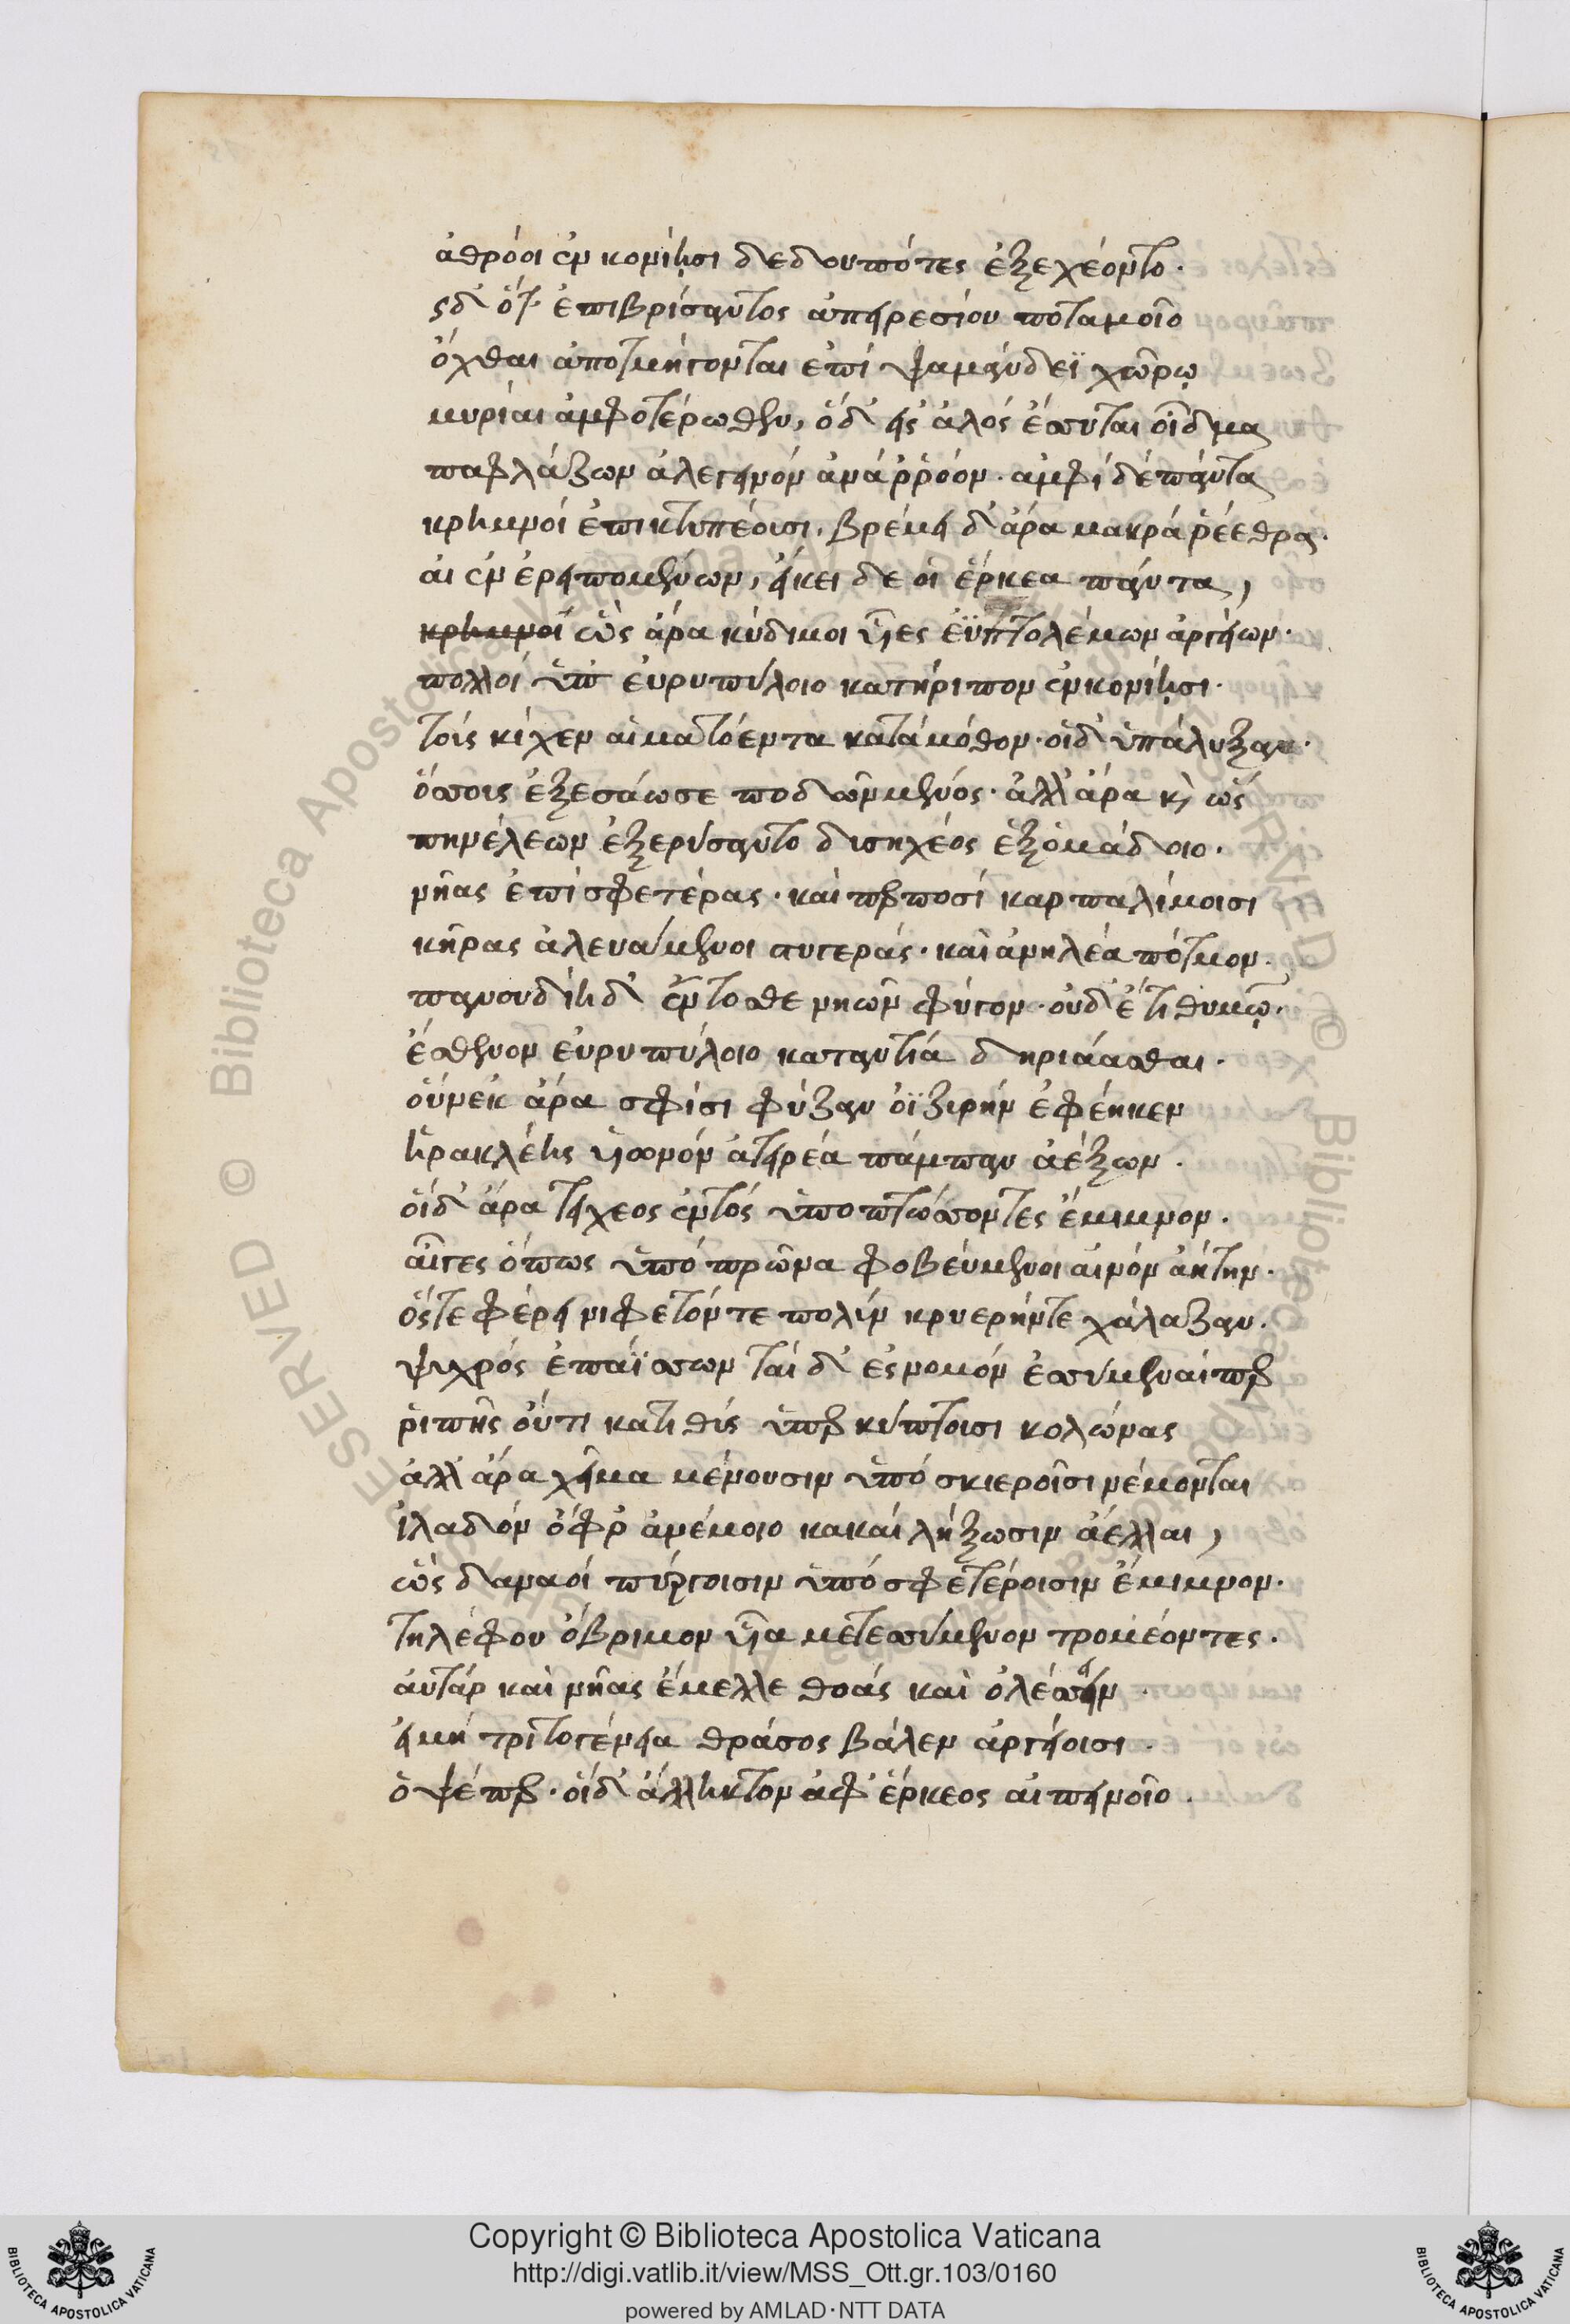 ἀθρόοι ἐν κονίῃσι δεδουπότες ἐξεχέοντο.
ὡς δ' ὅτ' ἐπιβρίσαντος ἀπειρεσίου ποταμοῖο
ὄχθαι ἀποτμήγονται ἐπὶ ψαμαθώδεϊ χώρῳ
μυρίαι ἀμφοτέρωθεν, ὁ δ' εἰς ἁλὸς ἔσσυται οἶδμα
παφλάζων ἀλεγεινὸν ἀνὰ ῥρόον. ἀμφὶ δὲ πάντα
κρημνοὶ ἐπικτυπέουσι. βρέμει δ' ἄρα μακρὰ ῥέεθρα.
αἰὲν ἐρειπομένων, εἴκει δέ οἱ ἕρκεα πάντα,
κρημνοὶ ὣς ἄρα κύδιμοι υἷες ἐϋπτολέμων ἀργείων.
πολλοὶ ὑπ' εὐρυπύλοιο κατήριπον ἐν κονίῃσι.
τοὺς κίχεν αἱματόεντα κατὰ μόθον. οἱ δ' ὑπάλυξαν.
ὅσσους ἐξεσάωσε ποδῶν μένος. ἀλλ' ἄρα καὶ ὣς
πηνέλεων ἐξερύσαντο δυσηχέος ἐξ ὁμάδοιο.
νῆας ἐπὶ σφετέρας. καίπερ ποσὶ καρπαλίμοισι
κῆρας ἀλευάμενοι στυγεράς. καὶ ἀνηλέα πότμον.
πανσυδίῃ δ' ἔντοσθε νηῶν φύγον. οὐδ' ἔτι θυμῷ.
ἔσθενον εὐρυπύλοιο καταντία δηριάασθαι.
οὕνεκ' ἄρα σφίσι φύζαν ὀϊζυρὴν ἐφέηκεν
ἡρακλέης υἱωνὸν ἀτειρέα πάμπαν ἀέξων.
οἱ δ' ἄρα τείχεος ἐντὸς ὑποπτώσσοντες ἔμιμνον.
αἶγες ὅπως ὑπὸ πρῶνα φοβεύμενοι αἰνὸν ἀήτην.
ὅς τε φέρει νιφετόν τε πολὺν κρυερήν τε χάλαζαν.
ψυχρὸς ἐπαΐσσων ταὶ δ' ἐς νομὸν ἐσσύμεναί περ
ῥιπῆς οὔτι κατιθὺς ὑπερκύπτουσι κολώνας
ἀλλ' ἄρα χεῖμα μένουσιν ὑπὸ σκιεροῖσι νέμονται
ἰλαδὸν ὄφρ' ἀνέμοιο κακαὶ λήξωσιν ἄελλαι,
ὣς δαναοὶ πύργοισιν ὑπὸ σφετέροισιν ἔμιμνον.
τηλέφου ὄβριμον υἷα μετεσσύμενον τρομέοντες.
αὐτὰρ καὶ νῆας ἔμελλε θοὰς καὶ ὀλέσσειν
εἰ μὴ τριτογένεια θράσος βάλεν ἀργείοισι.
ὀψέ περ. οἱ δ' ἄλληκτον ἀφ' ἕρκεος αἰπεινοῖο.
Copyright © Biblioteca Apostolica Vaticana
http://digi.vatlib.it/view/MSS_Ott.gr.103/0160
powered by AMLAD·NTT DATA